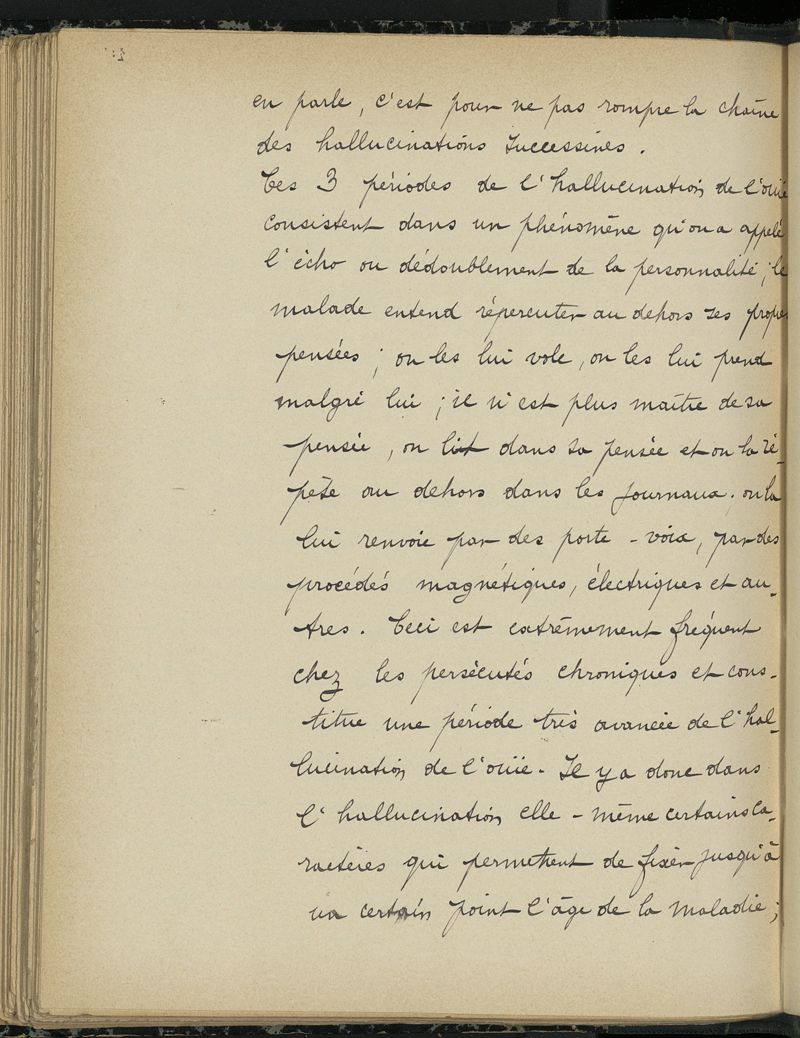 en parle, c'est pour ne pas rompre la chaîne
des hallucinations successives.
Ces 3 périodes de l'hallucination de l'ouïe
consistent dans un phénomène qu'on a appelé
l'écho ou dédoublement de la personnalité ; le
malade entend répercuter au dehors ses propres
pensées ; on les lui vole, on les lui prend
malgré lui ; il n'est plus maître de sa
pensée, on lit dans sa pensée et on la ré-
pète au dehors dans les journaux. on la
lui renvoie par des porte-voix, par des
procédés magnétiques, électriques et au-
tres. Ceci est extrêmement fréquent
chez les persécutés chroniques et cons-
titue une période très avancée de l'hal-
lucination de l'ouïe. Il y a donc dans
l'hallucination elle-même certains ca-
ractères qui permettent de fixer jusqu'à
un certain point l'âge de la maladie ;